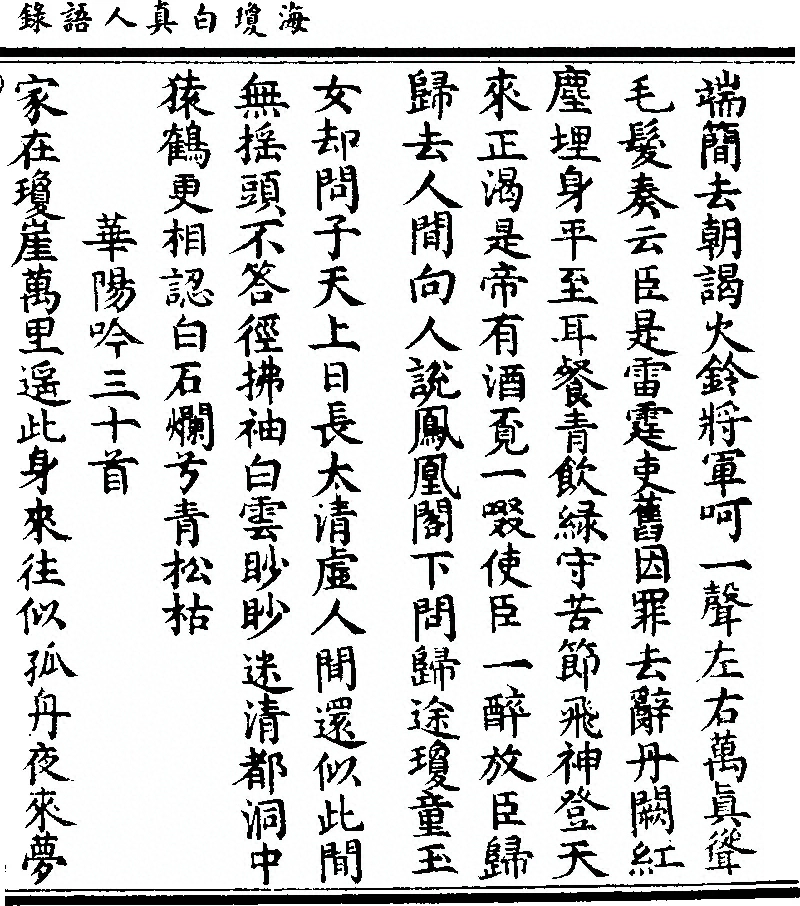 海瓊白真人語錄
端簡去朝謁火鈴將軍呵一聲左右萬眞聳
毛髮奏云臣是雷霆吏舊因罪去辭丹闕紅
塵埋身平至耳餐青飲緑守苦節飛神登天
來正渴是帝有酒覔一啜使臣一醉放臣歸
歸去人間向人說鳳凰閣下問歸途瓊童玉
女却問子天上日長太清虛人間還似此間
無摇頭不答徑拂袖白雲眇眇迷清都洞中
猿鶴更相認白石爛兮青松枯
華陽吟三十首
家在瓊崖萬里遥此身來往似孤舟夜來夢